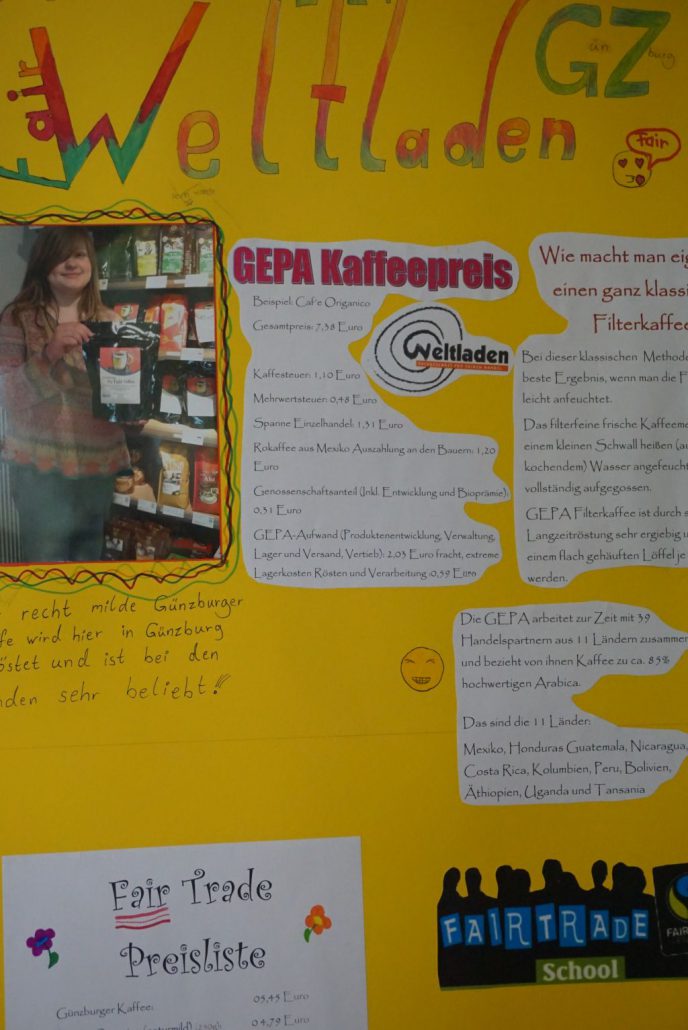 Fair
Weltladen
GZ
ünzburg
fair
GEPA Kaffeepreis
Beispiel: Caf'e Origanico
Gesamtpreis: 7,38 Euro
Kaffesteuer: 1,10 Euro
Mehrwertsteuer: 0,48 Euro
Spanne Einzelhandel: 1,31 Euro
Rokaffee aus Mexiko Auszahlung an den Bauern: 1,20
Euro
Genossenschaftsanteil (Inkl. Entwicklung und Bioprämie):
0,31 Euro
GEPA-Aufwand (Produktenentwicklung, Verwaltung,
Lager und Versand, Vertieb): 2,03 Euro fracht, extreme
Lagerkosten Rösten und Verarbeitung :0,59 Euro
Weltladen
FACHGESCHÄFT FÜR FAIREN HANDEL
Wie macht man eig
einen ganz klassi
Filterkaffee
Bei dieser klassischen Methode
beste Ergebnis, wenn man die F
leicht anfeuchtet.
Das filterfeine frische Kaffeeme
einem kleinen Schwall heißen (au
kochendem) Wasser angefeucht
vollständig aufgegossen.
GEPA Filterkaffee ist durch s
Langzeitröstung sehr ergiebig u
einem flach gehäuften Löffel je
werden.
recht milde Günzburger
fe wird hier in Günzburg
östet und ist bei den
nden sehr beliebt!!!
Die GEPA arbeitet zur Zeit mit 39
Handelspartnern aus 11 Ländern zusammen
und bezieht von ihnen Kaffee zu ca. 85%
hochwertigen Arabica.
Das sind die 11 Länder:
Mexiko, Honduras Guatemala, Nicaragua,
Costa Rica, Kolumbien, Peru, Bolivien,
Äthiopien, Uganda und Tansania
Fair Trade
Preisliste
Günzburger Kaffee: 05,45 Euro
04,79 Euro
FAIRTRADE
School
FAIR